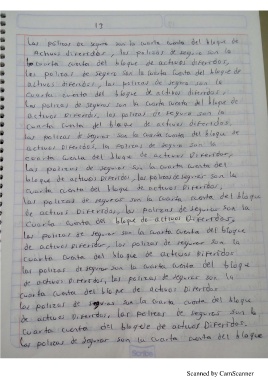 19
Las polizas de seguro son la cuarta cuenta del bloque de
activos Diferidos, las polizas de seguro son la
cuarta cuenta del bloque de activos diferidos,
las polizas de seguro son la cuarta cuenta del bloque de
activos diferidos, las polizas de seguros son la
cuarta cuenta del bloque de activos diferidos,
las polizas de seguros son la cuarta cuenta del bloque de
activos Diferidos, las polizas de seguro son la
cuarta cuenta del bloque de activos Diferidos.
las polizas de seguro son la cuarta cuenta del bloque de
activos Diferidos, la polizas de seguro son la
cuarta cuenta del bloque de activos Diferidos,
las polizas de seguro son la cuarta cuenta del
bloque de activos Diferidos, las polizas de seguro son la
cuarta cuenta del bloque de activos diferidos,
las polizas de seguros son la cuarta cuenta del bloque
de activos Diferidos, las polizas de seguros son la
cuarta cuenta del bloque de activos Diferidos,
las polizas de seguro son la cuarta cuenta del bloque
de activos diferidos, las polizas de seguros son la
cuarta cuenta del bloque de activos Diferidos
las polizas de seguros son la cuarta cuenta del bloque
de activos Diferidos, las polizas de seguros son la
cuarta cuenta del bloque de activos Diferidos
las polizas de seguros son la cuarta cuenta del bloque
de activos Diferidos, las polizas de seguros son la
cuarta cuenta del bloque de activos Diferidos.
las polizas de seguros son la cuarta cuenta del bloque
Scanned by CamScanner